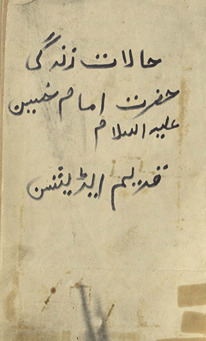 حالات زندگی
حضرت امام حسین
علیہ السلام
قدیم ایڈیشن